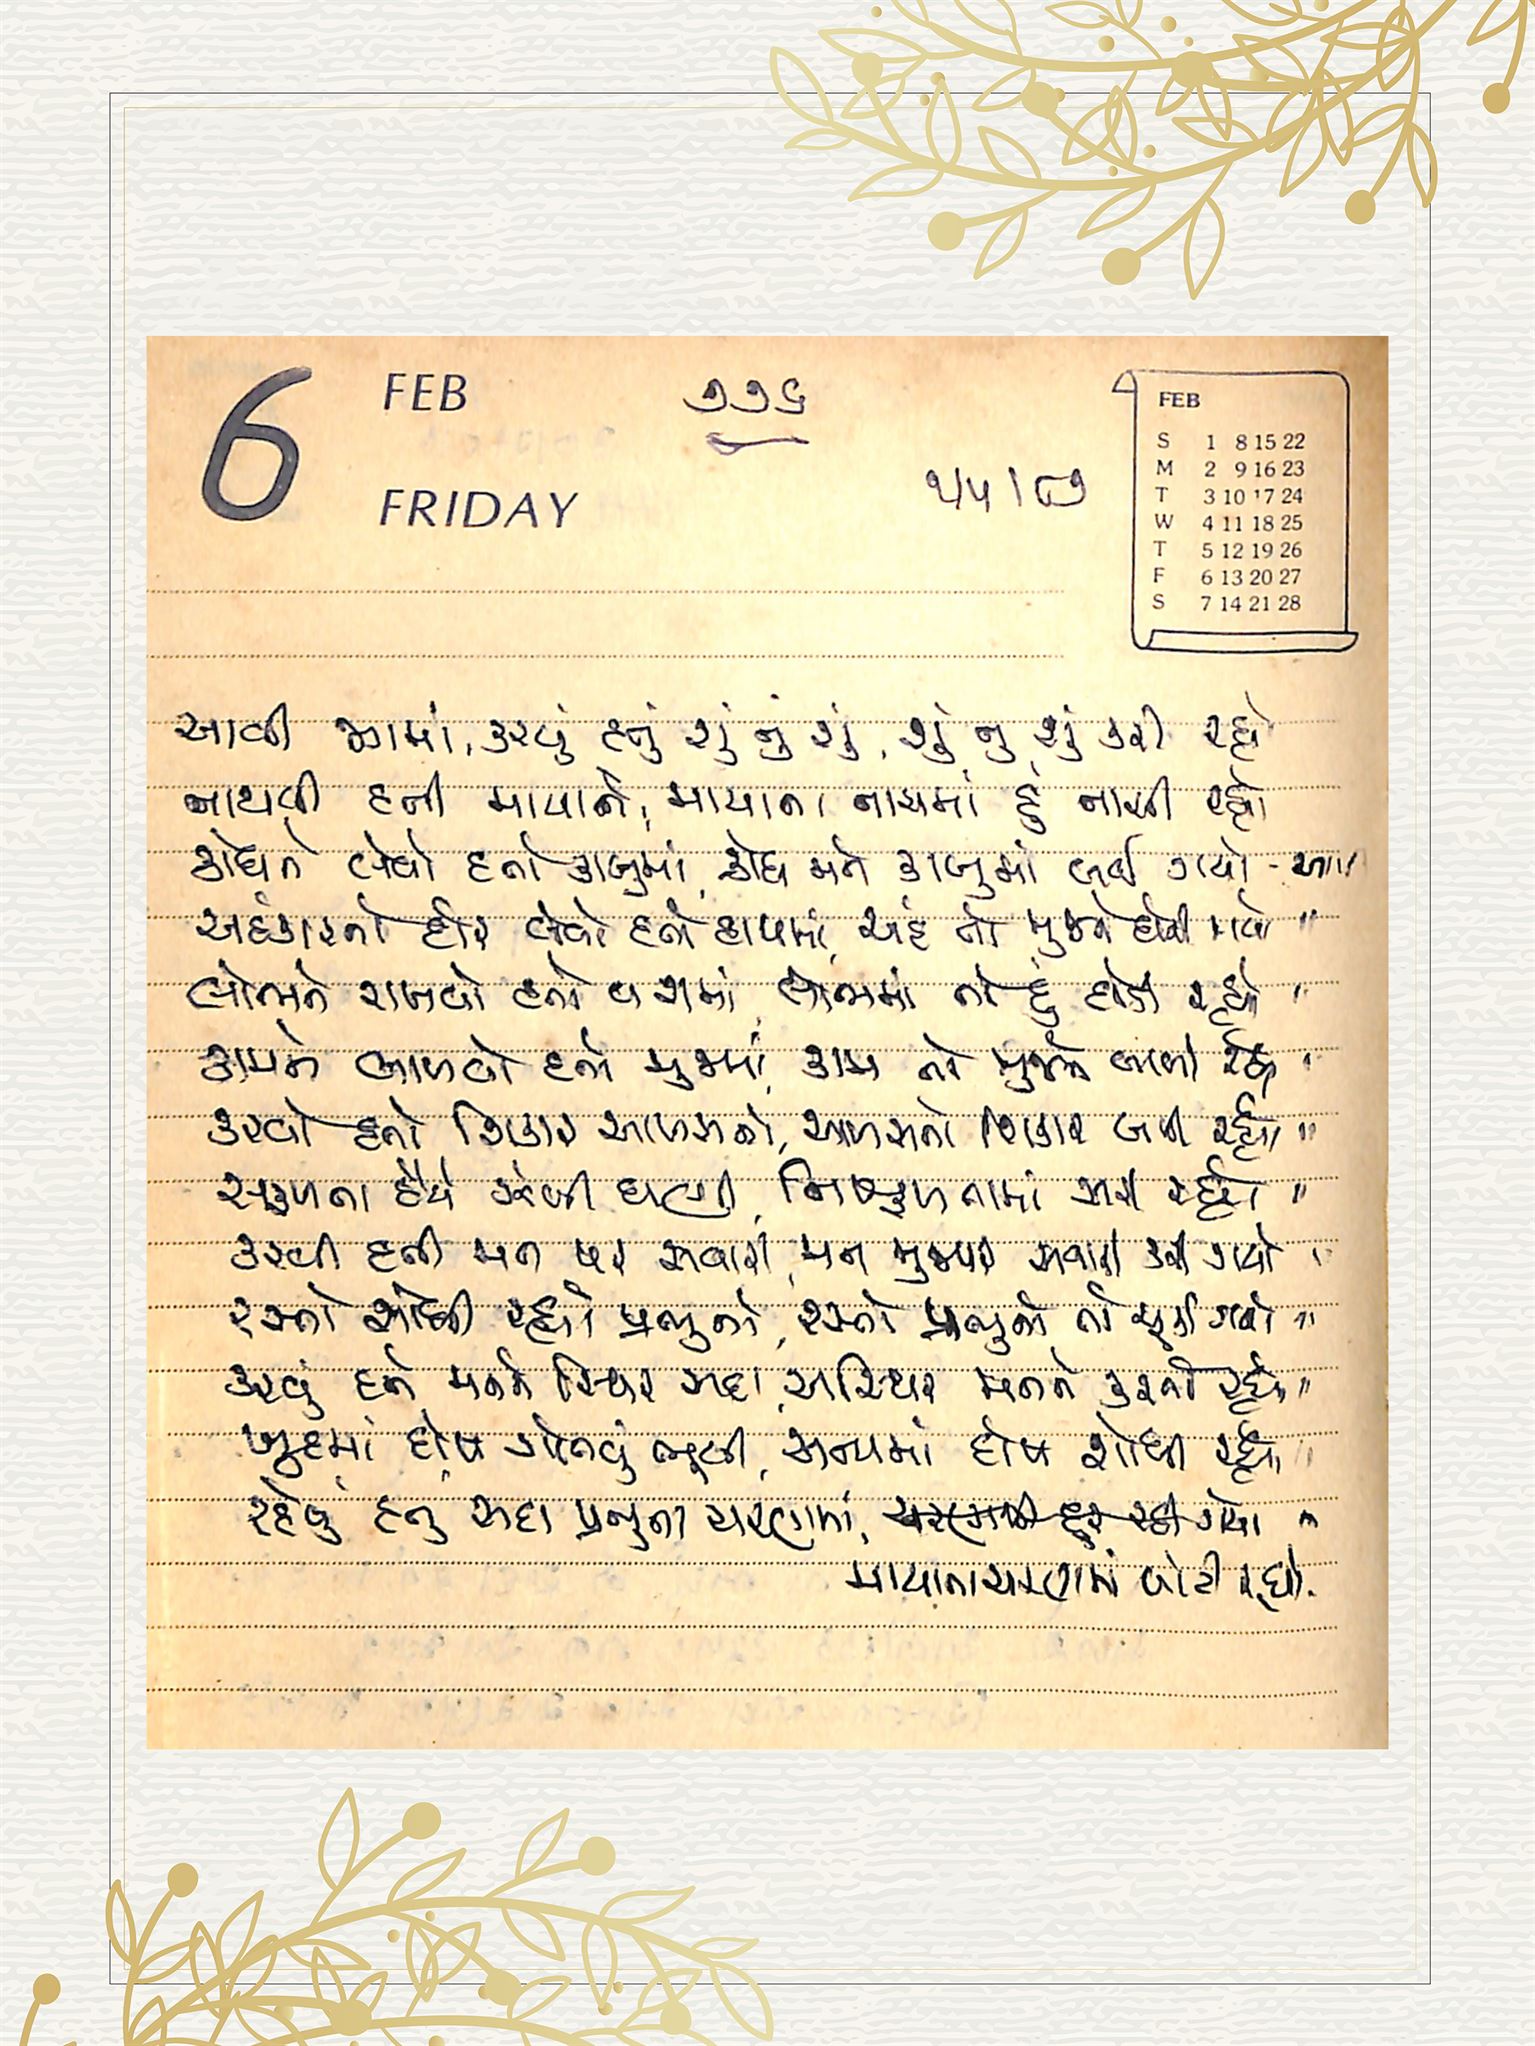 6 FEB ૭૭૬
FRIDAY ૧/૫/૮૭
FEB
S 1 8 15 22
M 2 9 16 23
T 3 10 17 24
W 4 11 18 25
T 5 12 19 26
F 6 13 20 27
S 7 14 21 28
આવી જગમાં, કરવું હતું શું નું શું, શું નુ શું કરી રહ્યો
નાથવી હતી માયાને, માયાના નાચમાં હું નાચી રહ્યો
ક્રોધને લેવો હતો કાબુમાં, ક્રોધ મને કાબુમાં લઈ ગયો - આ
અહંકારનો દોર લેવો હતો હાથમાં, અહં તો મુજને દોરી ગયો "
લોભને રાખવો હતો વશમાં, લોભમાં તો હું દોડી રહ્યો "
કામને બાળવો હતો મુજમાં, કામ તો મુજને બાળી રહ્યો "
કરવો હતો શિકાર આળસનો, આળસનો શિકાર બની રહ્યો "
સફળતા હૈયે ઝંખી ઘણી, નિષ્ફળતામાં સરી રહ્યો "
કરવી હતી મન પર સવારી, મન મુજપર સવારી કરી ગયો "
રસ્તો શોધી રહ્યો પ્રભુનો, રસ્તો પ્રભુનો તો ચૂકી ગયો "
કરવું હતું મનને સ્થિર સદા, અસ્થિર મનને કરતો રહ્યો "
ખુદમાં દોષ ગોતવું ભૂલી, અન્યમાં દોષ શોધી રહ્યો "
રહેવું હતુ સદા પ્રભુના ચરણમાં, ચરણથી દૂર રહી ગયો "
માયાના ચરણમાં લોટી રહ્યો.